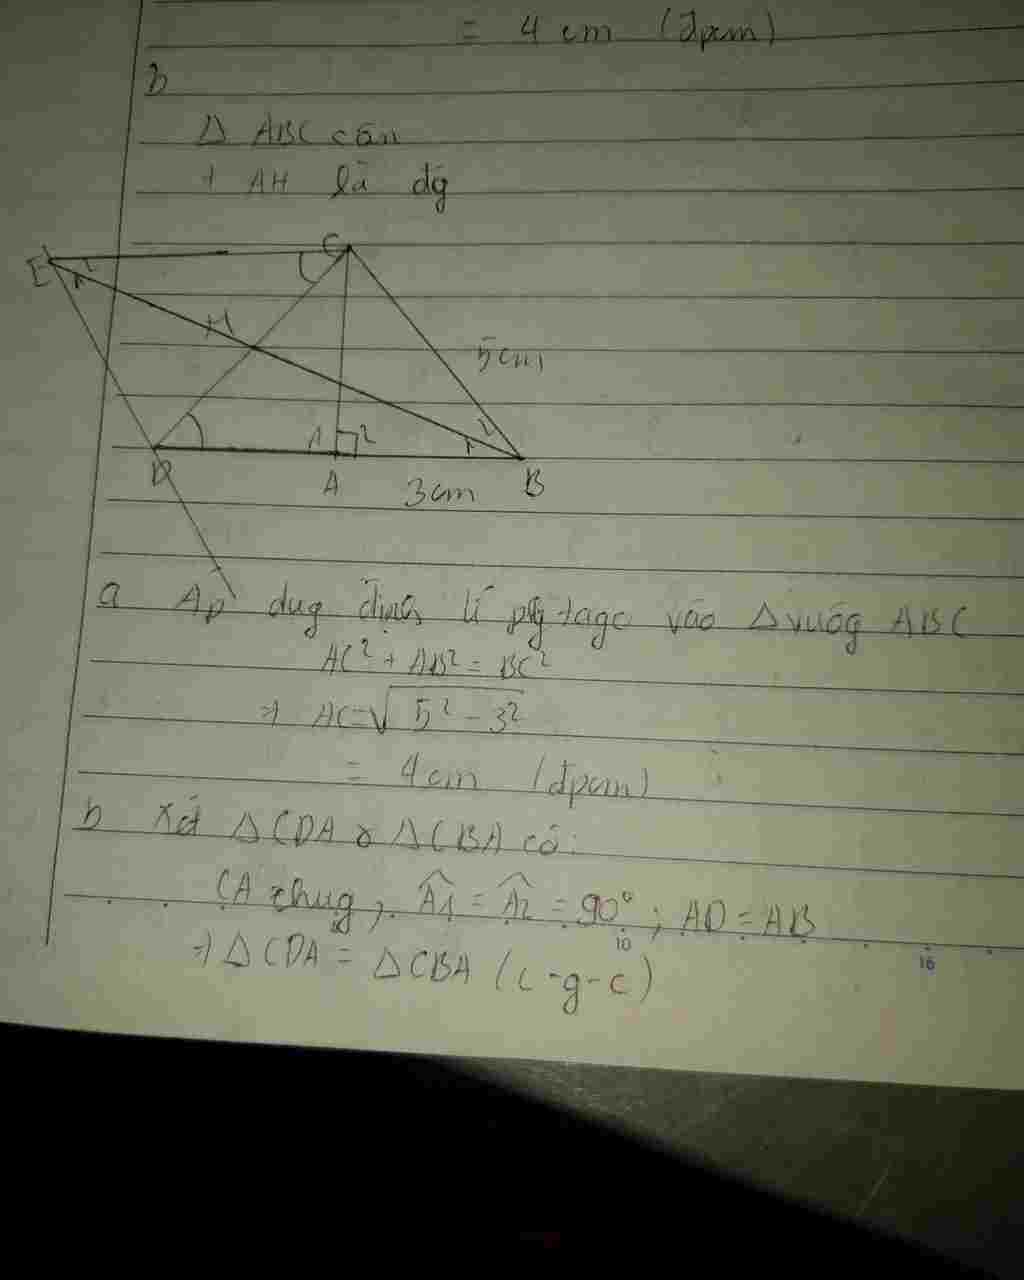 = 4 cm (đpcm)
b
Δ ABC cân
+ AH là đg
E 1 2 C
H
5cm
2
1 2 1
D A 3cm B
a Áp dug định lí pytago vào Δ vuôg ABC
AC² + AB² = BC²
=> AC = √5² - 3²
= 4cm (đpcm)
b Xét ΔCDA & ΔCBA có:
CA chug, Â1 = Â2 = 90°; AD = AB
10 16
=> ΔCDA = ΔCBA (c-g-c)